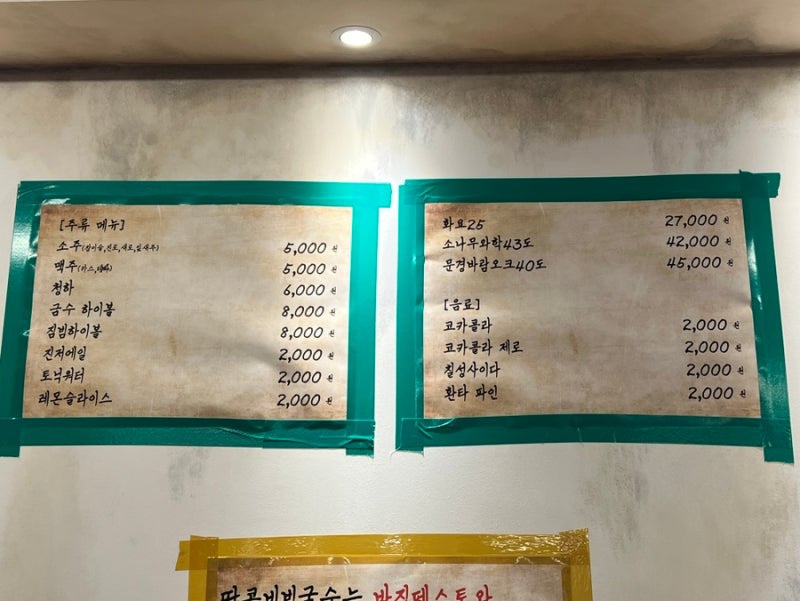 [주류 메뉴]
소주(참이슬,진로,새로,잎새주) 5,000 원
맥주(카스,테라) 5,000 원
청하 6,000 원
금수 하이볼 8,000 원
짐빔하이볼 8,000 원
진저에일 2,000 원
토닉워터 2,000 원
레몬슬라이스 2,000 원
화요25 27,000 원
소나무와학43도 42,000 원
문경바람오크40도 45,000 원
[음료]
코카콜라 2,000 원
코카콜라 제로 2,000 원
칠성사이다 2,000 원
환타 파인 2,000 원
땅콩비빔국수는 바질페스토와